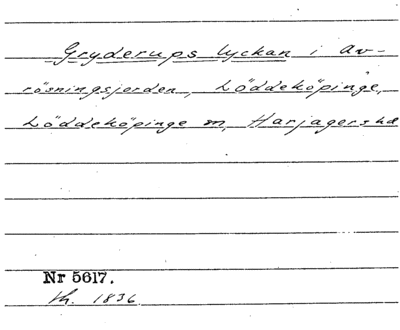 Gryderups lyckan i Av-
rösningsjorden, Löddeköpinge,
Löddeköpinge sn, Harjagers hd
Nr 5617.
th. 1836